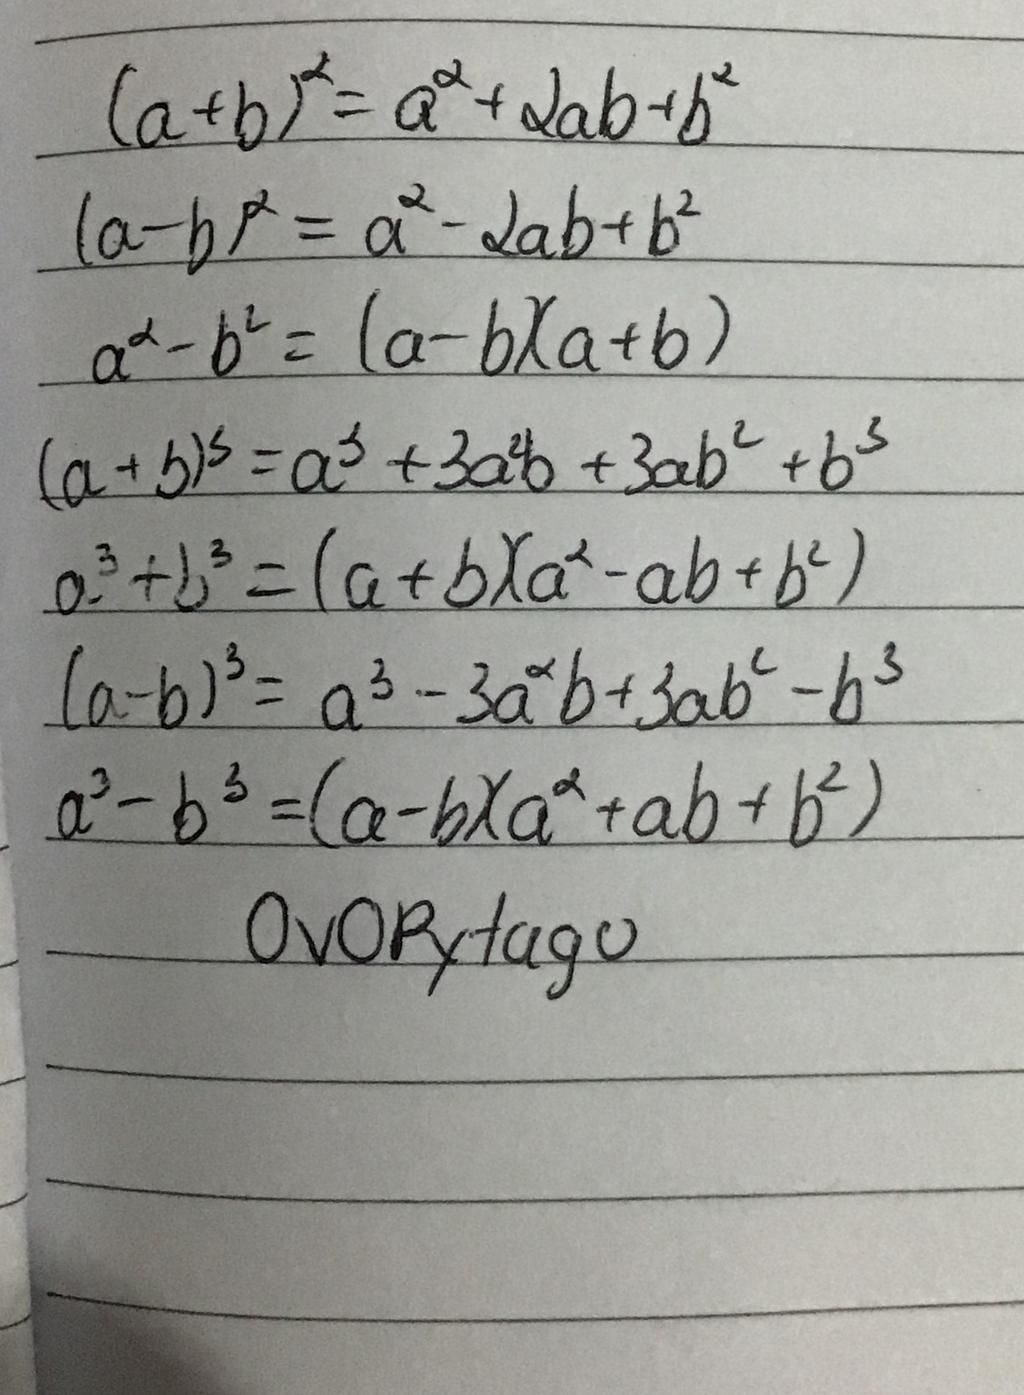 (a+b)² = a² + 2ab + b²
(a-b)² = a² - 2ab + b²
a² - b² = (a-b)(a+b)
(a+b)³ = a³ + 3a²b + 3ab² + b³
a³ + b³ = (a+b)(a² - ab + b²)
(a-b)³ = a³ - 3a²b + 3ab² - b³
a³ - b³ = (a-b)(a² + ab + b²)
OvOPytago